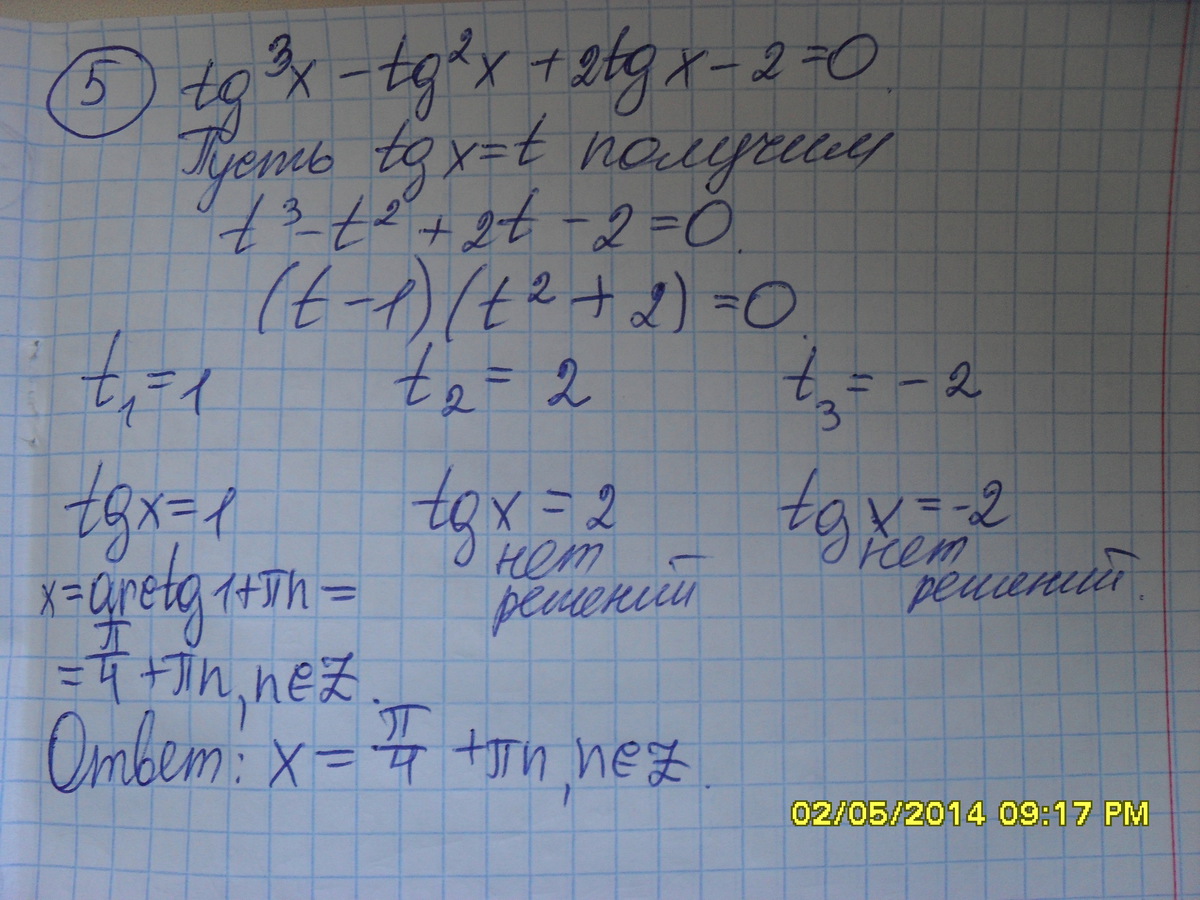 5 tg³x − tg²x + 2tg x − 2 = 0.
Пусть tg x = t получим
t³ − t² + 2t − 2 = 0.
(t − 1)(t² + 2) = 0.
t₁ = 1 t₂ = 2 t₃ = −2
tgx = 1 tgx = 2 tgx = -2
нет нет
x = arctg 1 + πn = решений решений.
= π/4 + πn, n∈Z.
Ответ: x = π/4 + πn, n∈Z.
02/05/2014 09:17 PM